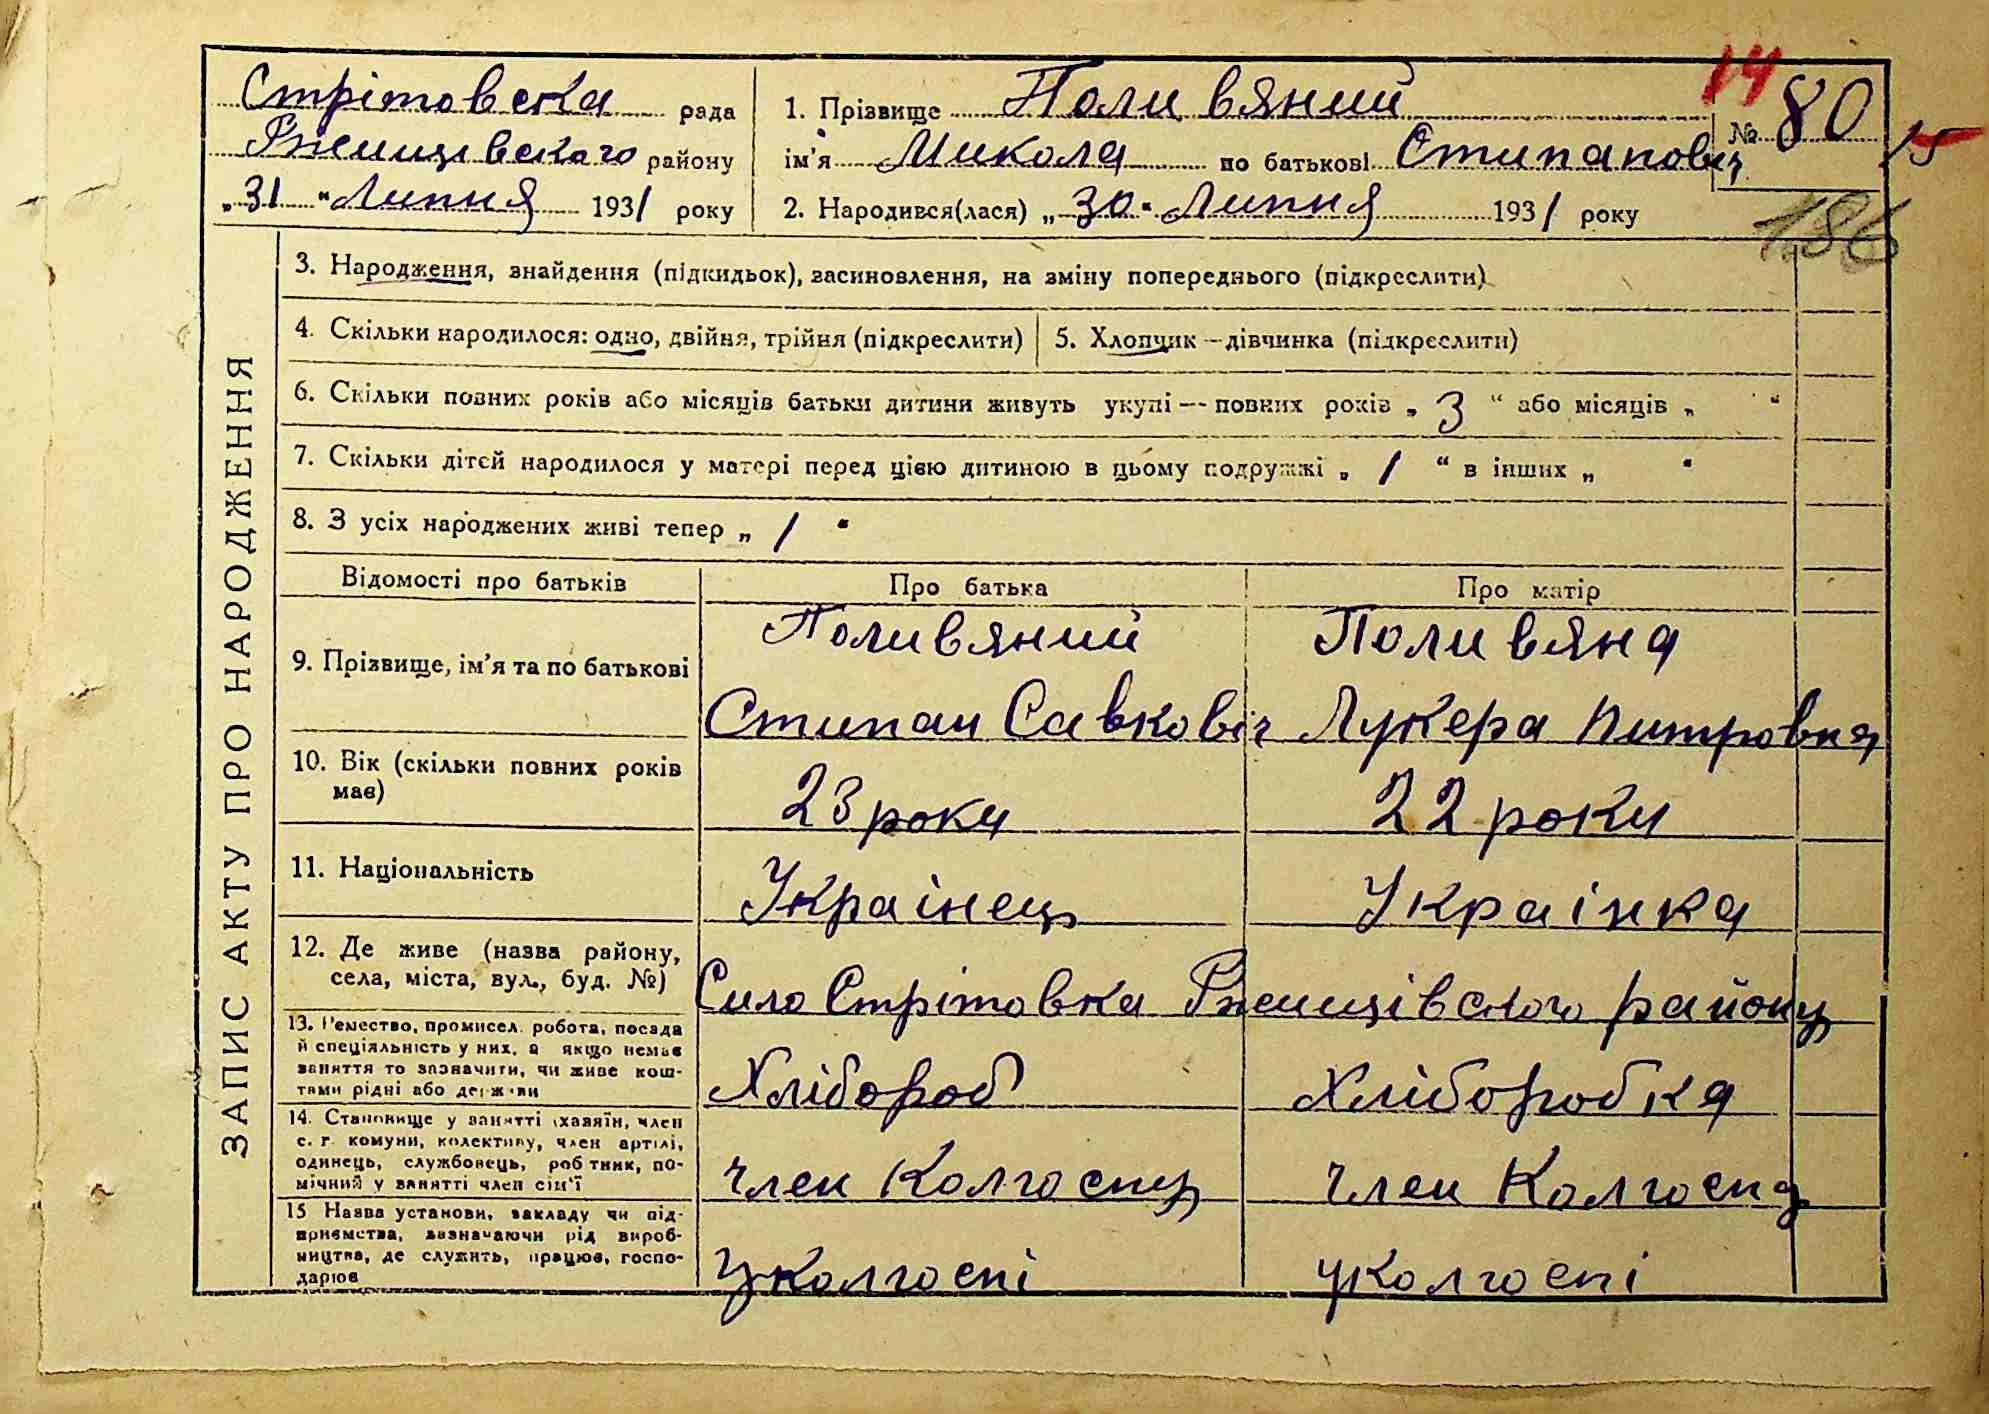 Стрітовска рада
Ржищівського району
„31“ Липня 1931 року
1. Прізвище Поливяний
ім'я Микола по батькові Стипанович
2. Народився(лася) „30“ Липня 1931 року
14
№ 80
15
186
ЗАПИС АКТУ ПРО НАРОДЖЕННЯ
3. Народження, знайдення (підкидьок), засиновлення, на зміну попереднього (підкреслити)
4. Скільки народилося: одно, двійня, трійня (підкреслити) 5. Хлопчик—дівчинка (підкреслити)
6. Скільки повних років або місяців батьки дитини живуть укупі — повних років „ 3 “ або місяців „ “
7. Скільки дітей народилося у матері перед цією дитиною в цьому подружжі „ 1 “ в інших „ “
8. З усіх народжених живі тепер „ 1 “
Відомості про батьків Про батька Про матір
9. Прізвище, ім'я та по батькові
Поливяний
Стипан Савковіч
Поливяна
Лукера Питровна
10. Вік (скільки повних років
має)
23 роки
22 роки
11. Національність
Украінець
Украінка
12. Де живе (назва району,
села, міста, вул., буд. №)
Сило Стрітовка Ржищівского району
13. Ремество, промисел, робота, посада
й спеціяльність у них, а якщо немає
заняття то зазначити, чи живе кош-
тами рідні або держави
Хлібороб
Хліборобка
14. Становище у занятті (хазяїн, член
с. г. комуни, колективу, член артілі,
одинець, службовець, робітник, по-
мічний у занятті член сім'ї
член Колгоспу
член Колгоспа
15 Назва установи, закладу чи під-
приємства, зазначаючи рід вироб-
ництва, де служить, працює, госпо-
дарює
уколгоспі
уколгоспі